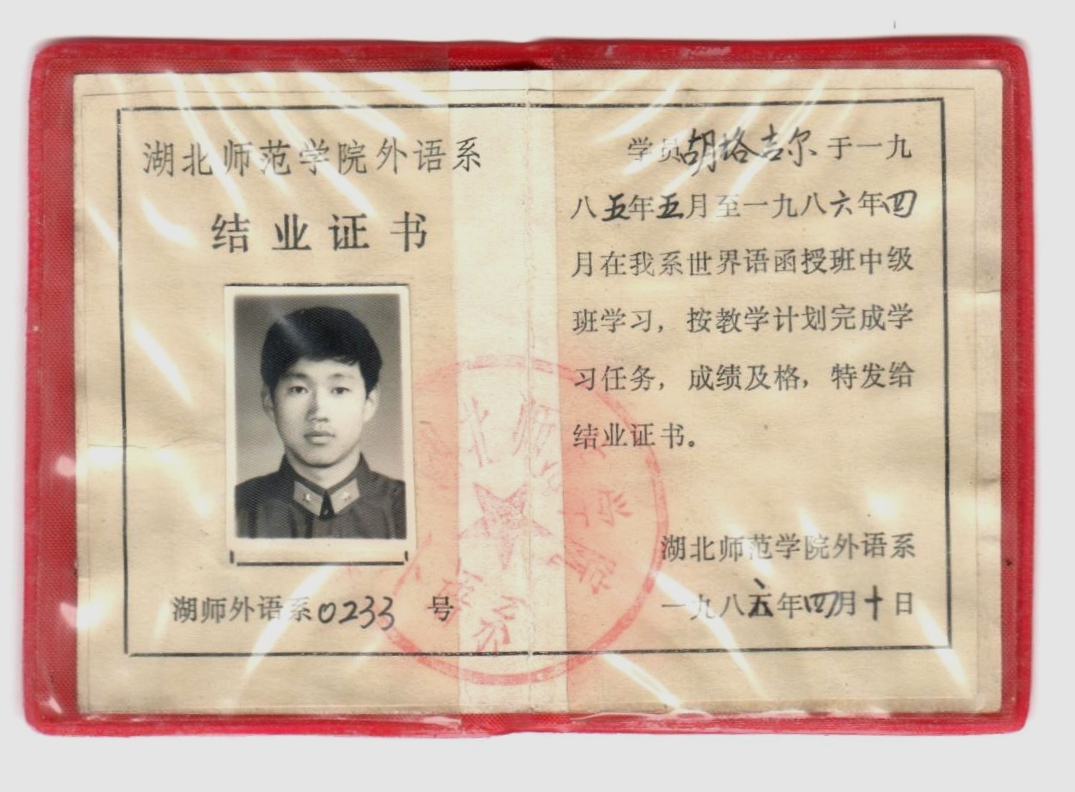 湖北师范学院外语系
结业证书
湖师外语系0233 号
学员胡格吉尔于一九
八五年五月至一九八六年四
月在我系世界语函授班中级
班学习，按教学计划完成学
习任务，成绩及格，特发给
结业证书。
湖北师范学院外语系
一九八六年四月十日